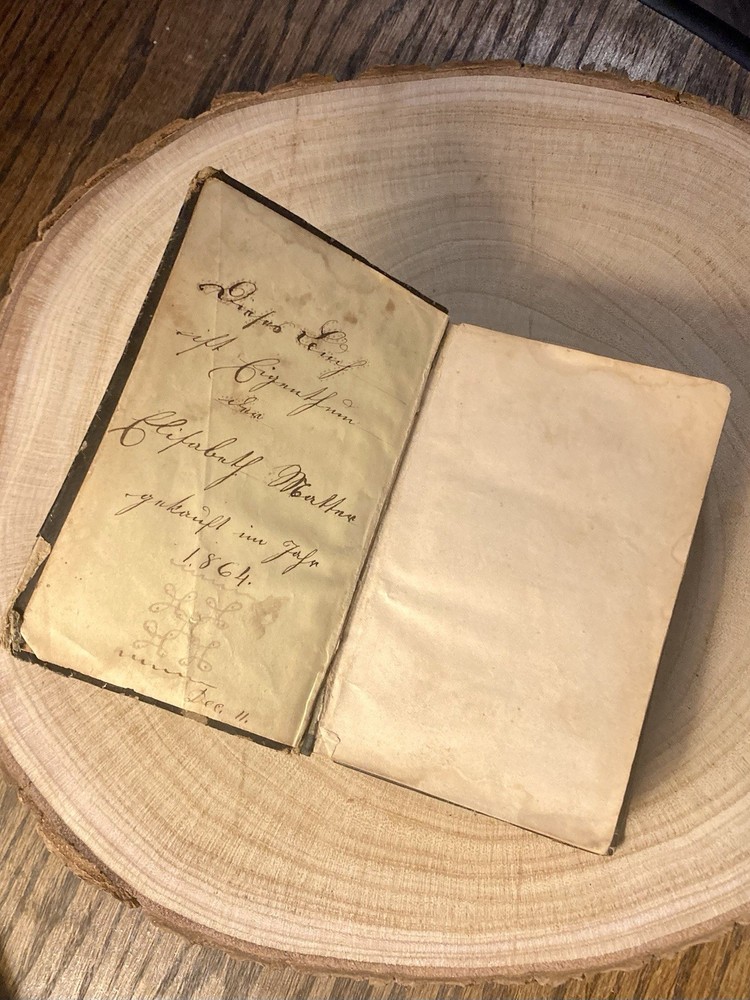 Dieses Buch
ist Eigenthum
der
Elisabeth Matter
gekauft im Jahr
1864.
Dec. 11.